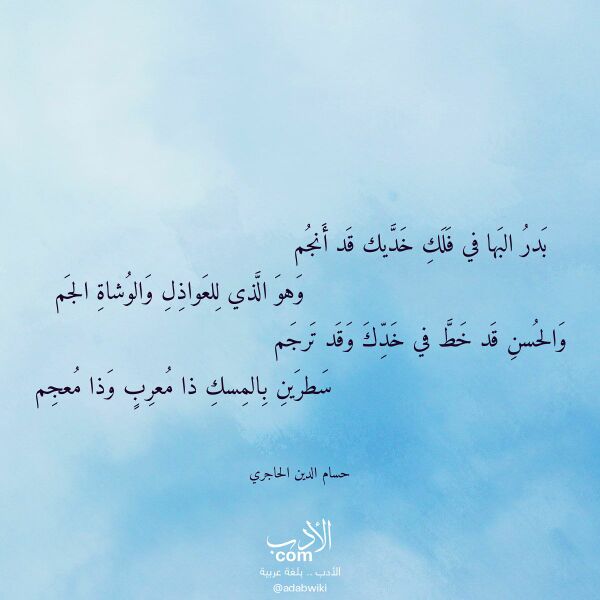 بَدرُ البَها في فَلَكِ خَدَّيك قَد أَنجُم
وَهوَ الَّذي لِلعَواذِلِ وَالوُشاةِ الجَم
وَالحُسنِ قَد خَطَّ في خَدِّكَ وَقَد تَرجَم
سَطرَينِ بِالمِسكِ ذا مُعرِبٍ وَذا مُعجِم
حسام الدين الحاجري
الأدب
com
الأدب .. بلغة عربية
@adabwiki